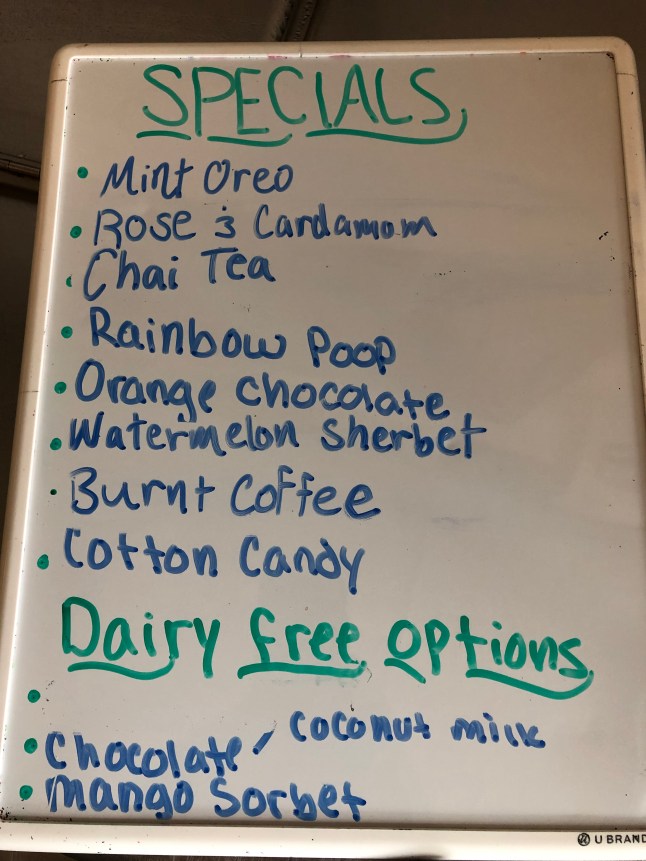 SPECIALS
• Mint Oreo
• Rose & Cardamom
• Chai Tea
• Rainbow Poop
• Orange chocolate
• Watermelon Sherbet
• Burnt Coffee
• Cotton Candy
Dairy free options
•
• Chocolate / Coconut milk
• Mango Sorbet
U BRAND